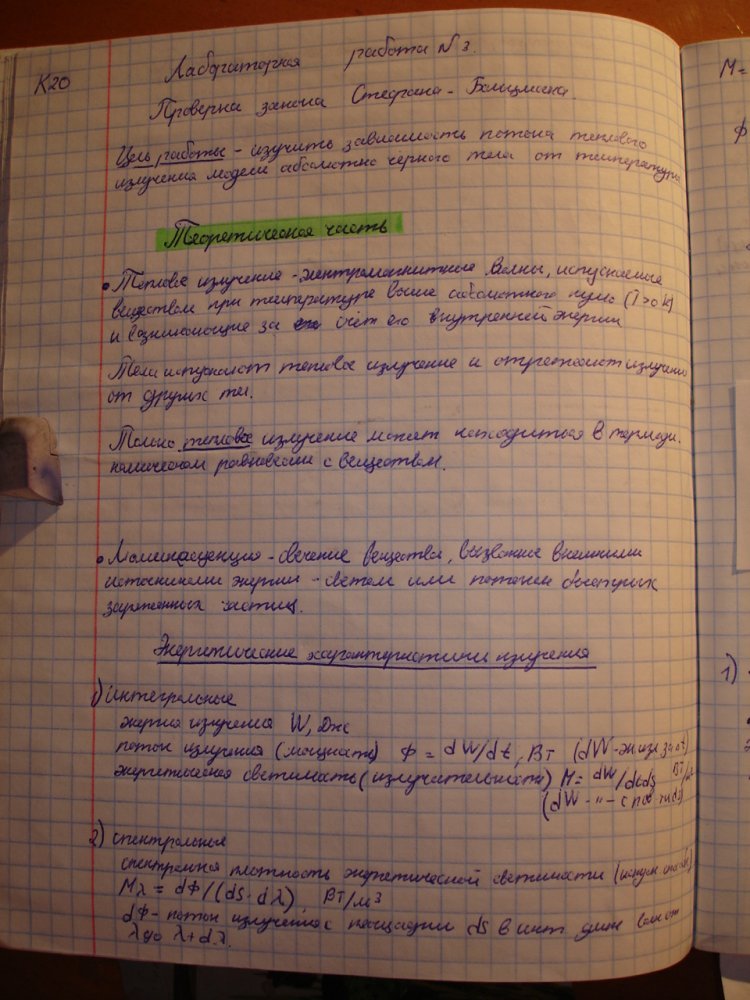 К20
Лабораторная работа №3.
Проверка закона Стефана-Больцмана.
Цель работы - изучить зависимость потока теплового
излучения модели абсолютно чёрного тела от температуры
Теоретическая часть
• Тепловое излучение - электромагнитные волны, испускаемые
веществом при температуре выше абсолютного нуля (T>0K)
и возникающие за счёт его внутренней энергии
Тела испускают тепловое излучение и отражают излучение
от других тел.
Только тепловое излучение может находиться в термоди-
намическом равновесии с веществом.
• Люминесценция - свечение вещества, вызванное внешними
источниками энергии - светом или потоком быстрых
заряженных частиц.
Энергетические характеристики излучения
1) интегральные
энергия излучения W, Дж
поток излучения (мощность) Ф = dW/dt, Вт (dW - эн изл за dt)
энергетическая светимость (излучательность) M = dW/dtds Вт/м²
(dW - " - с пов-ти ds)
2) спектральные
спектральная плотность энергетической светимости (испуск
Mλ = dФ/(ds·dλ), Вт/м³
dФ - поток излучения с площадки ds в инт. длин волн от
λ до λ+dλ.
M=
Ф
1)